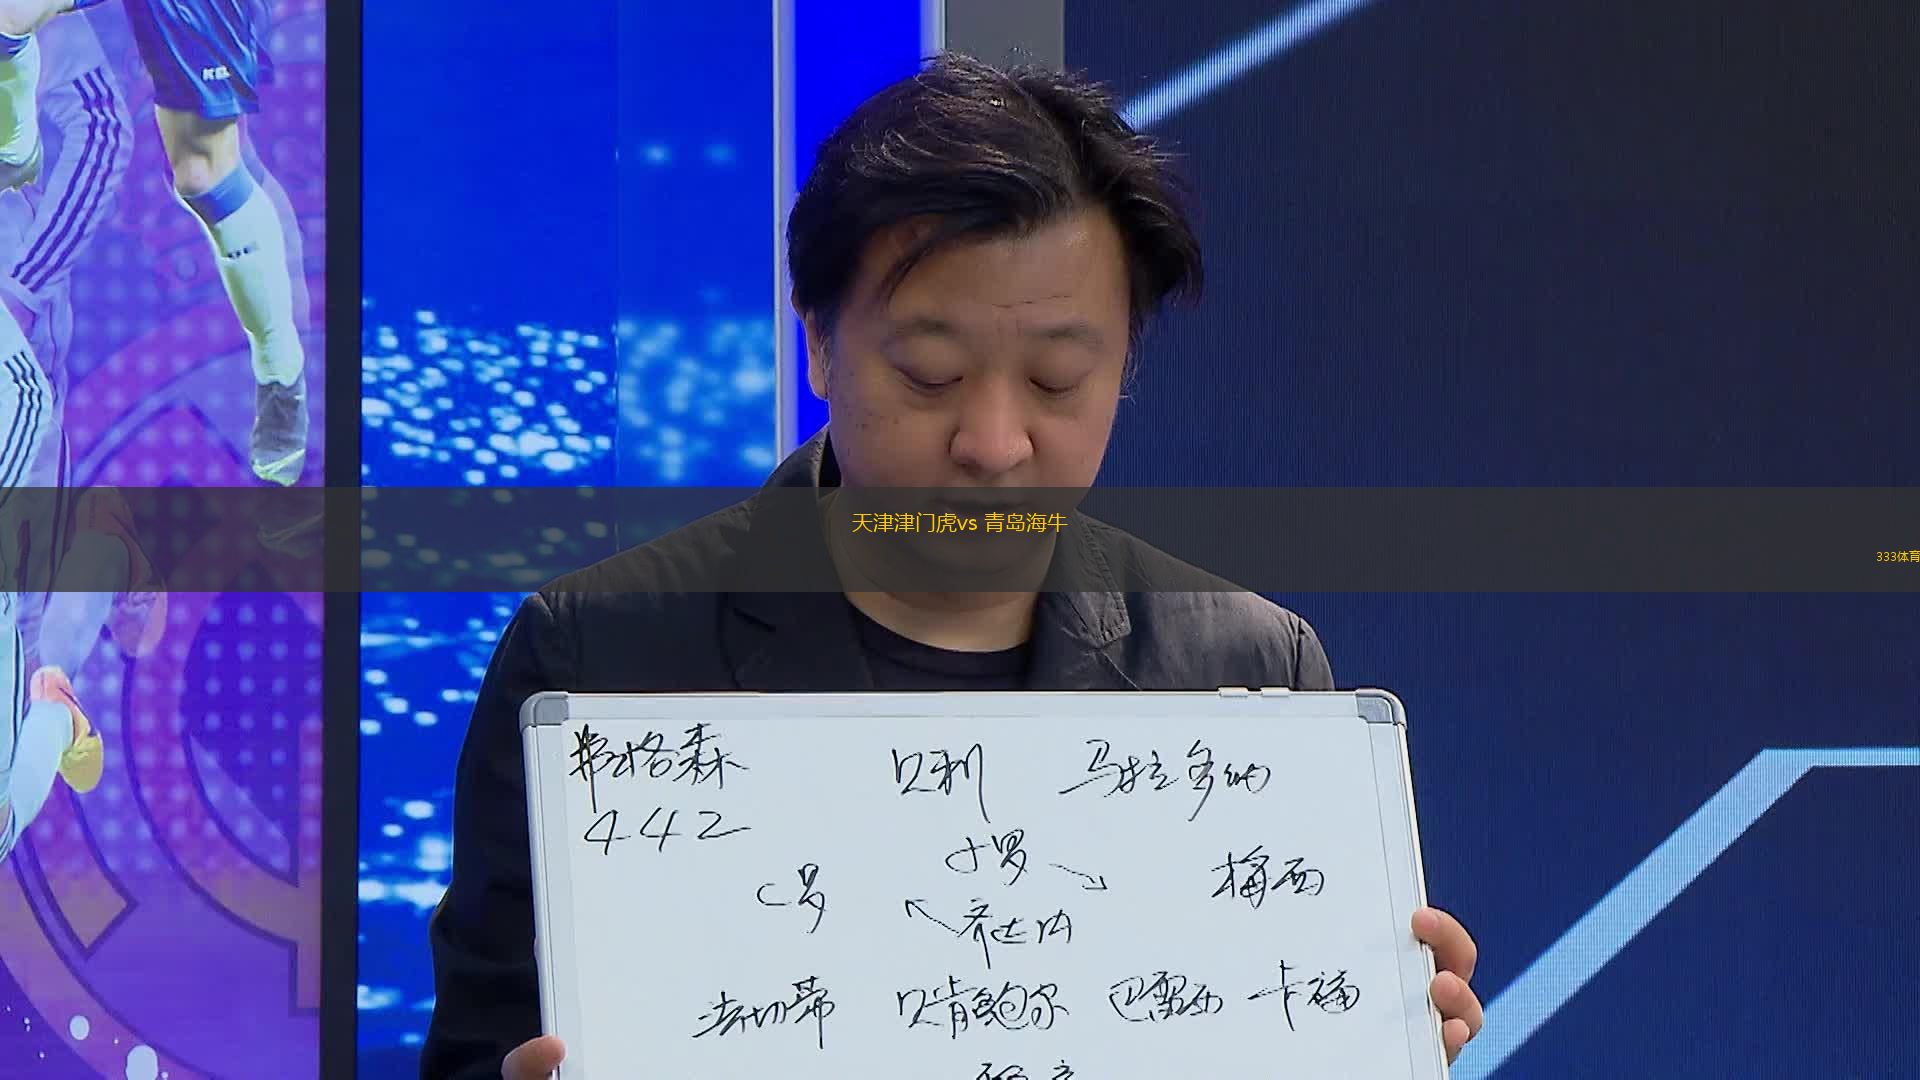 天津津门虎vs 青岛海牛
333体育
弗格森 贝利 马拉多纳
442
小罗
C罗 梅西
齐达内
法切蒂 贝肯鲍尔 巴雷西 卡福